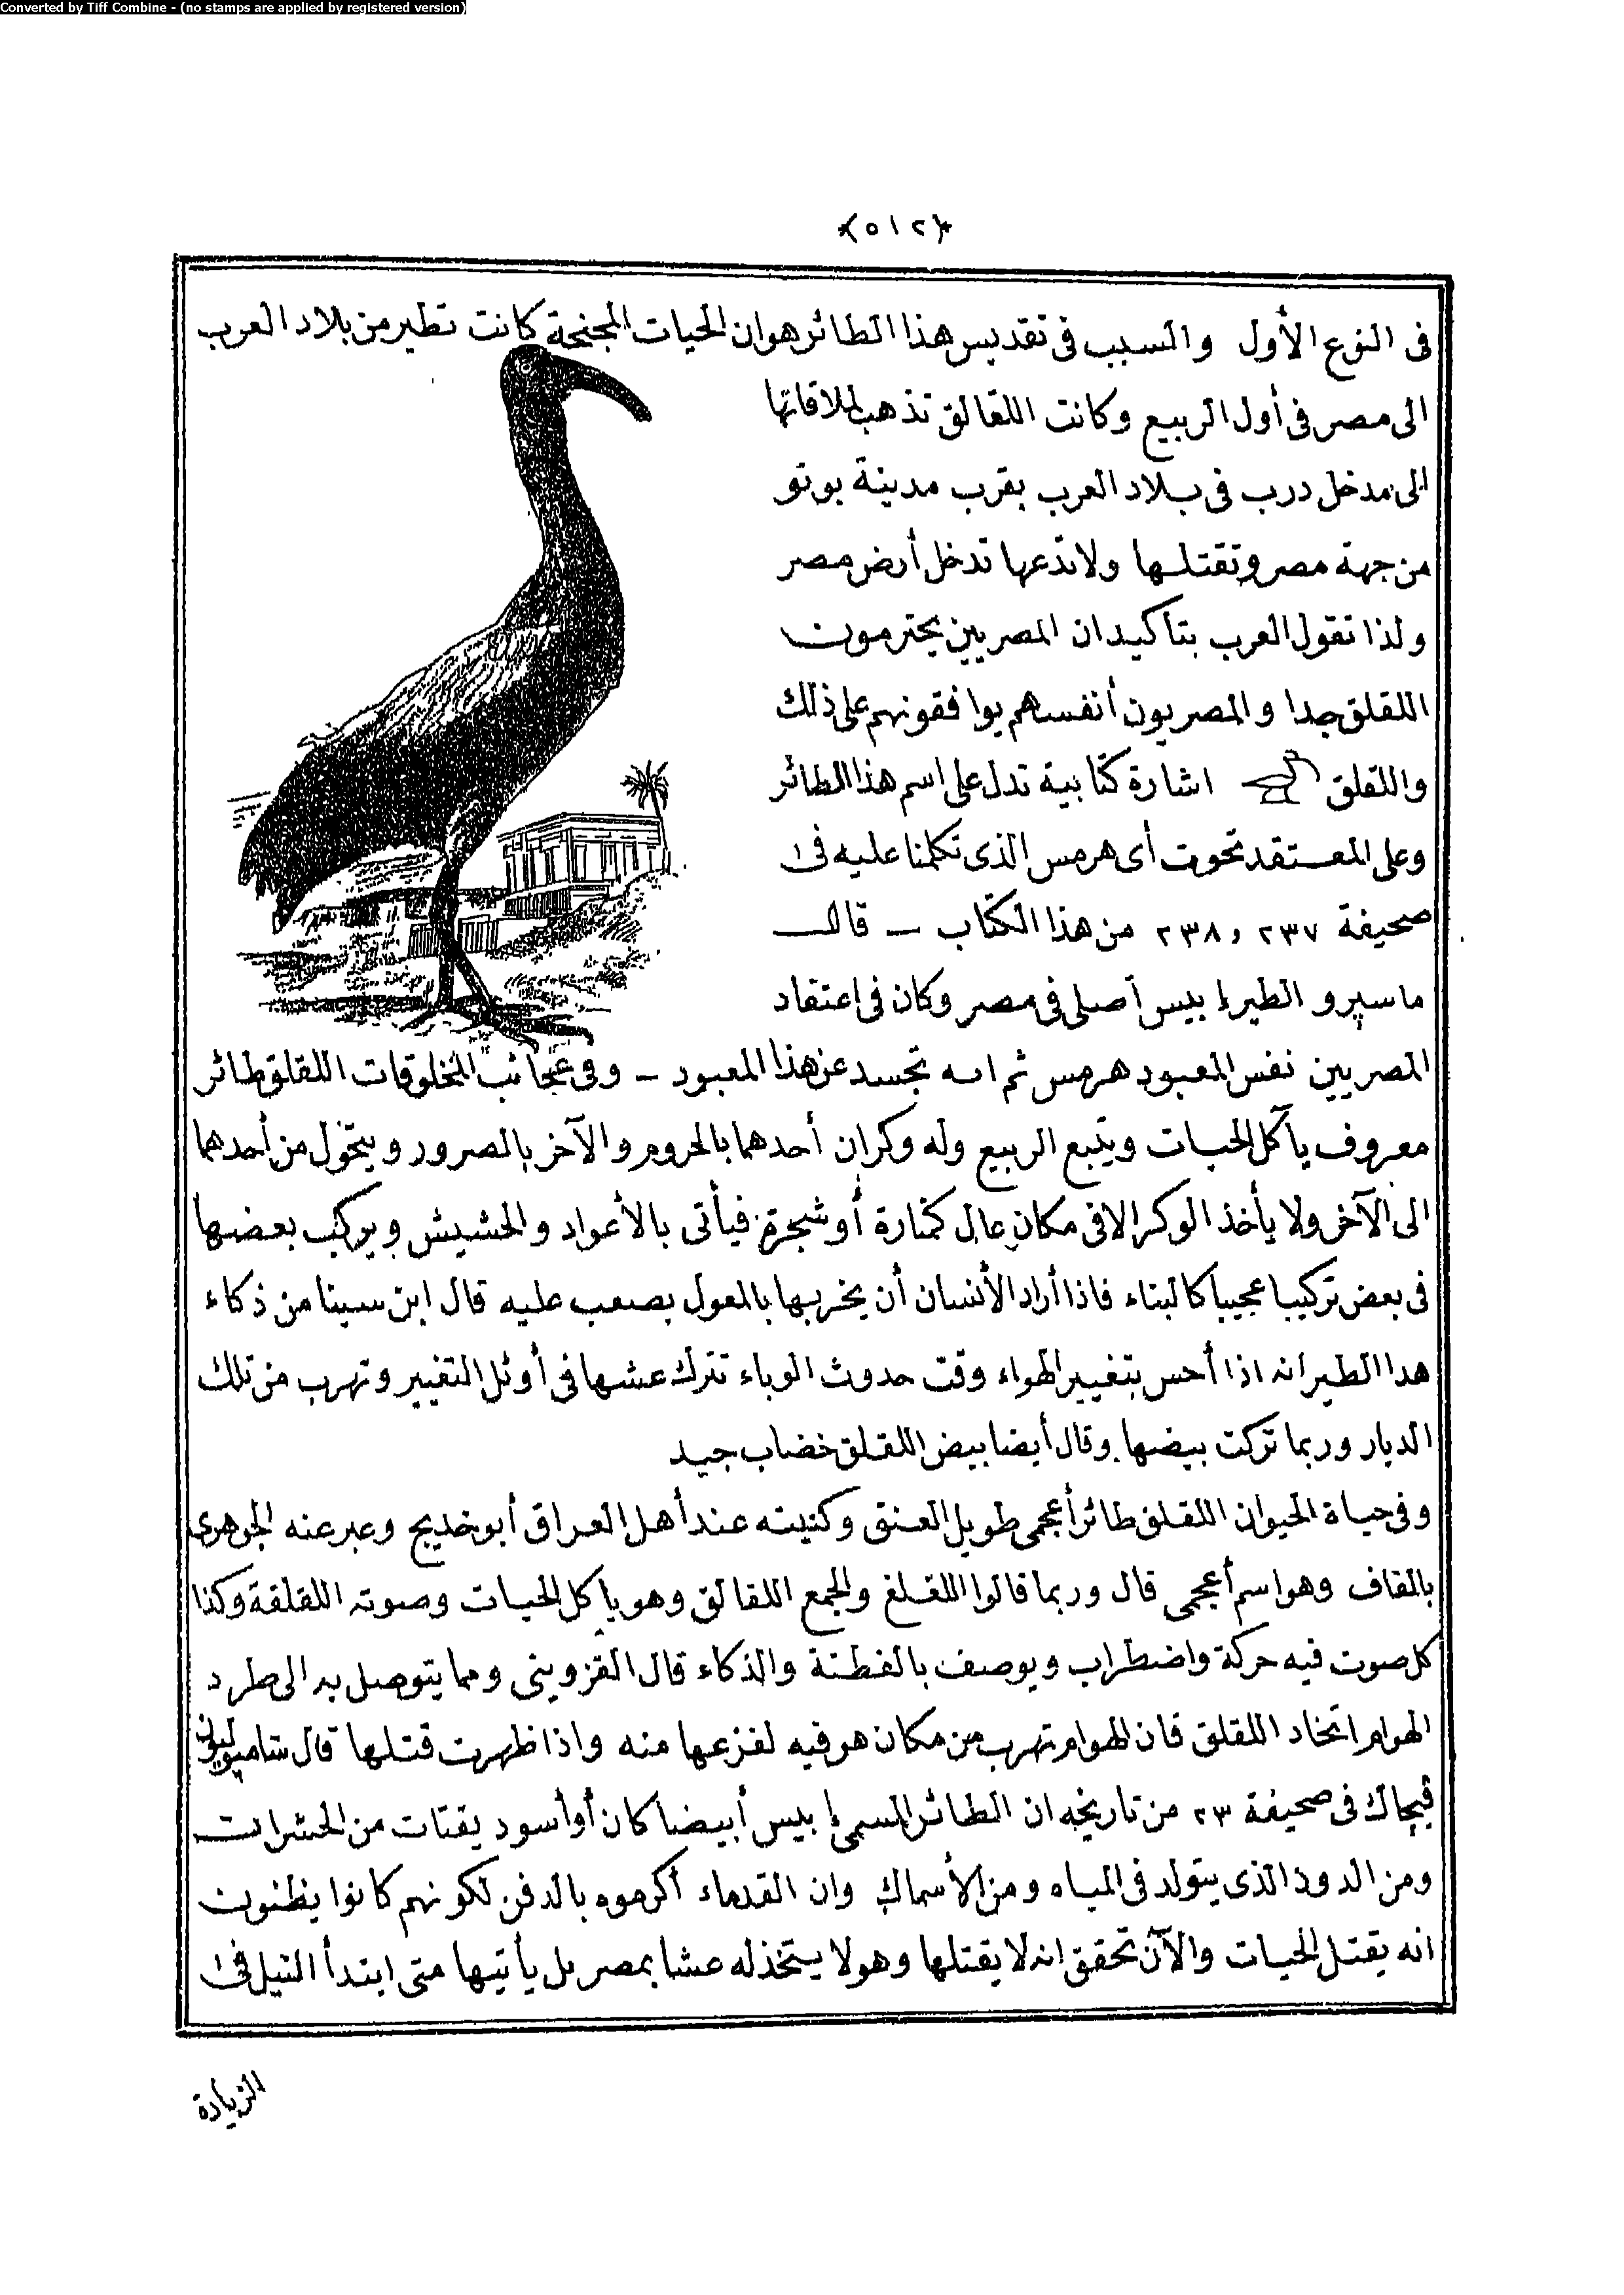 Converted by Tiff Combine - (no stamps are applied by registered version)
﴿٥١٢﴾
فى النوع الأول والسبب فى تقديس هذا الطائر هو ان الحيات المجنحة كانت تطير من بلاد العرب
الى مصر فى أول الربيع وكانت اللقالق تذهب لملاقاتها
الى مدخل درب فى بلاد العرب بقرب مدينة بوتو
من جهة مصر وتقتلها ولا تدعها تدخل أرض مصر
ولذا تقول العرب بتأكيد ان المصريين يحترمون
اللقلق جدا والمصريون أنفسهم يوافقونهم على ذلك
واللقلق اشارة كتابية تدل على اسم هذا الطائر
وعلى المعتقد تحوت أى هرمس الذى تكلمنا عليه فى
صحيفة ٢٣٧ و ٢٣٨ من هذا الكتاب — قال
ماسپرو الطير إبيس أصلى فى مصر وكان فى اعتقاد
المصريين نفس المعبود هرمس ثم انه تجسد عن هذا المعبود — وفى عجائب المخلوقات اللقلق طائر
معروف يأكل الحيات ويتبع الربيع وله وكران أحدهما بالحروم والآخر بالصرور ويتحول من أحدهما
الى الآخر ولا يأخذ الوكر الا فى مكان عال كمنارة أو شجرة فيأتى بالأعواد والحشيش ويركب بعضها
فى بعض تركيبا عجيبا كالبناء فاذا أراد الأنسان أن يخربها بالمعول يصعب عليه قال ابن سينا من ذكاء
هذا الطير انه اذا أحس بتغيير الهواء وقت حدوث الوباء تترك عشها فى أوئل التغيير وتهرب من تلك
الديار وربما تركت بيضها وقال أيضا بيض اللقلق خضاب جيد
وفى حياة الحيوان اللقلق طائر أعجمى طويل العنق وكنيته عند أهل العراق أبو خديج وعبر عنه الجوهرى
بالقاف وهو اسم أعجمى قال وربما قالوا اللقلغ والجمع اللقالق وهو يأكل الحيات وصوته اللقلقة وكذا
كل صوت فيه حركة واضطراب ويوصف بالفطنة والذكاء قال القزوينى ومما يتوصل به الى طرد
الهوام اتخاد اللقلق فان الهوام تهرب من مكان هو فيه لفزعها منه واذا ظهرت قتلها قال شامپوليون
فيجاك فى صحيفة ٢٣ من تاريخه ان الطائر المسمى إبيس أبيضا كان أو أسود يقتات من الحشرات
ومن الدود الذى يتولد فى المياه ومن الأسماك وان القدماء أكرموه بالدفن لكونهم كانوا يظنون
انه يقتل الحيات والآن تحقق انه لا يقتلها وهو لا يتخذ له عشا بمصر بل يأتيها متى ابتدأ النيل فى
الزيادة